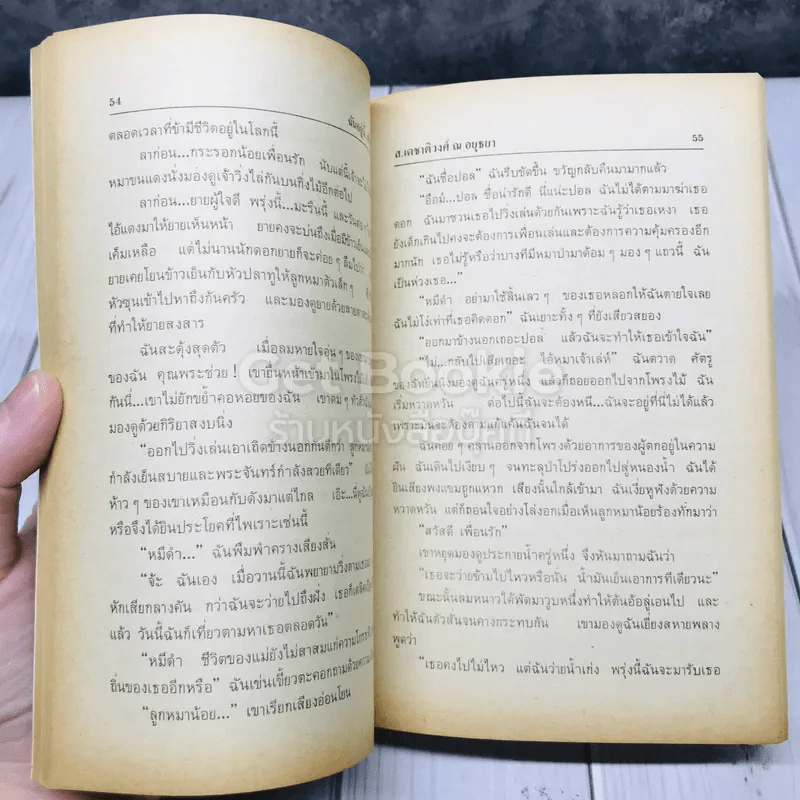 54
ตลอดเวลาที่ข้ามีชีวิตอยู่ในโลกนี้
ลาก่อน...กระรอกน้อยเพื่อนรัก นับแต่นี้เจ้าจะไม่
หมาขนแดงนั่งมองดูเจ้าวิ่งไล่กันบนกิ่งไม้อีกต่อไป
ลาก่อน...ยายผู้ใจดี พรุ่งนี้...มะรืนนี้ และวันต่อๆ
ไอ้แดงมาให้ยายเห็นหน้า ยายคงจะบ่นถึงเมื่อมีข้าวเย็น
เค็มเหลือ แต่ไม่นานนักดอกยายก็จะค่อยๆ ลืมไป
ยายเคยโยนข้าวเย็นกับหัวปลาทูให้ลูกหมาตัวเล็กๆ
หัวซุนเข้าไปหาถึงก้นครัว และมองดูยายด้วยสายตา
ที่ทำให้ยายสงสาร
ฉันสะดุ้งสุดตัว เมื่อลมหายใจอุ่นๆ ของ
ของฉัน คุณพระช่วย! เขายืนหน้าเข้ามาในโพรงไม้
กันนี่...เขาไม่ยักขย้ำคอหอยของฉัน เขาดมๆ ทั่วตัว
มองดูด้วยกิริยาสงบนิ่ง
“ออกไปวิ่งเล่นเอาเถิดข้างนอกกันดีกว่า ลูกหมา
กำลังเย็นสบายและพระจันทร์กำลังสวยทีเดียว”
ห้าวๆ ของเขาเหมือนกับดังมาแต่ไกล เอ๊ะ...นี่หู
หรือจึงได้ยินประโยคที่ไพเราะเช่นนี้
“หมีดำ...” ฉันพึมพำครางเสียงสั่น
“จ้ะ ฉันเอง เมื่อวานนี้ฉันพยายามวิ่งตามเธอ
หักเสียกลางคัน กว่าฉันจะว่ายไปถึงฝั่ง เธอก็เตลิด
แล้ว วันนี้ฉันก็เที่ยวตามหาเธอตลอดวัน”
“หมีดำ ชีวิตของแม่ยังไม่สาสมแก่ความโกรธ
ถิ่นของเธออีกหรือ” ฉันเข่นเขี้ยวตะคอกถามด้วยความ
“ลูกหมาน้อย...” เขาเรียกเสียงอ่อนโยน
ส.เดชาติวงศ์ ณ อยุธยา 55
“ฉันชื่อปอล” ฉันรีบขัดขึ้น ขวัญกลับคืนมามากแล้ว
“อือม์...ปอล ชื่อน่ารักดี นี่แน่ะปอล ฉันไม่ได้ตามมาฆ่าเธอ
ดอก ฉันมาชวนเธอไปวิ่งเล่นด้วยกันเพราะฉันรู้ว่าเธอเหงา เธอ
ยังเด็กเกินไปคงจะต้องการเพื่อนเล่นและต้องการความคุ้มครองอีก
มากนัก เธอไม่รู้หรือว่าบางทีมีหมาป่ามาด้อมๆ มองๆ แถวนี้ ฉัน
เป็นห่วงเธอ...”
“หมีดำ อย่ามาใช้ลิ้นเลวๆ ของเธอหลอกให้ฉันตายใจเลย
ฉันไม่โง่เท่าที่เธอคิดดอก” ฉันเยาะทั้งๆ ที่ยังเสียวสยอง
“ออกมาข้างนอกเถอะปอล แล้วฉันจะทำให้เธอเข้าใจฉัน”
“ไม่...กลับไปเสียเถอะ ไอ้หมาเจ้าเล่ห์” ฉันตวาด ศัตรู
ของฉันยืนนิ่งมองดูฉันครู่หนึ่ง แล้วก็ถอยออกไปจากโพรงไม้ ฉัน
เริ่มหวาดหวั่น ต่อไปนี้ฉันจะต้องหนี...ฉันจะอยู่ที่นี่ไม่ได้แล้ว
เพราะมันจะต้องตามแก้แค้นฉันจนได้
ฉันค่อยๆ คลานออกจากโพรงด้วยอาการของผู้ตกอยู่ในความ
ฝัน ฉันเดินไปเงียบๆ จนทะลุป่าโปร่งออกไปสู่หนองน้ำ ฉันได้
ยินเสียงพงแขมถูกแหวก เสียงนั้นใกล้เข้ามา ฉันเงี่ยหูฟังด้วยความ
หวาดหวั่น แต่ก็ถอนใจอย่างโล่งอกเมื่อเห็นลูกหมาน้อยร้องทักมาว่า
“สวัสดี เพื่อนรัก”
เขาหยุดมองดูประกายน้ำครู่หนึ่ง จึงหันมาถามฉันว่า
“เธอจะว่ายข้ามไปไหวหรือนั่น น้ำมันเย็นเอาการทีเดียวนะ”
ขณะนั้นลมหนาวได้พัดมาวูบหนึ่งทำให้ต้นอ้อลู่เอนไป และ
ทำให้ฉันตัวสั่นจนคางกระทบกัน เขามองดูฉันเยี่ยงสหายพลาง
พูดว่า
“เธอคงไปไม่ไหว แต่ฉันว่ายน้ำเก่ง พรุ่งนี้ฉันจะมารับเธอ
Get Bookie
ร้านหนังสือบุ๊คกี้